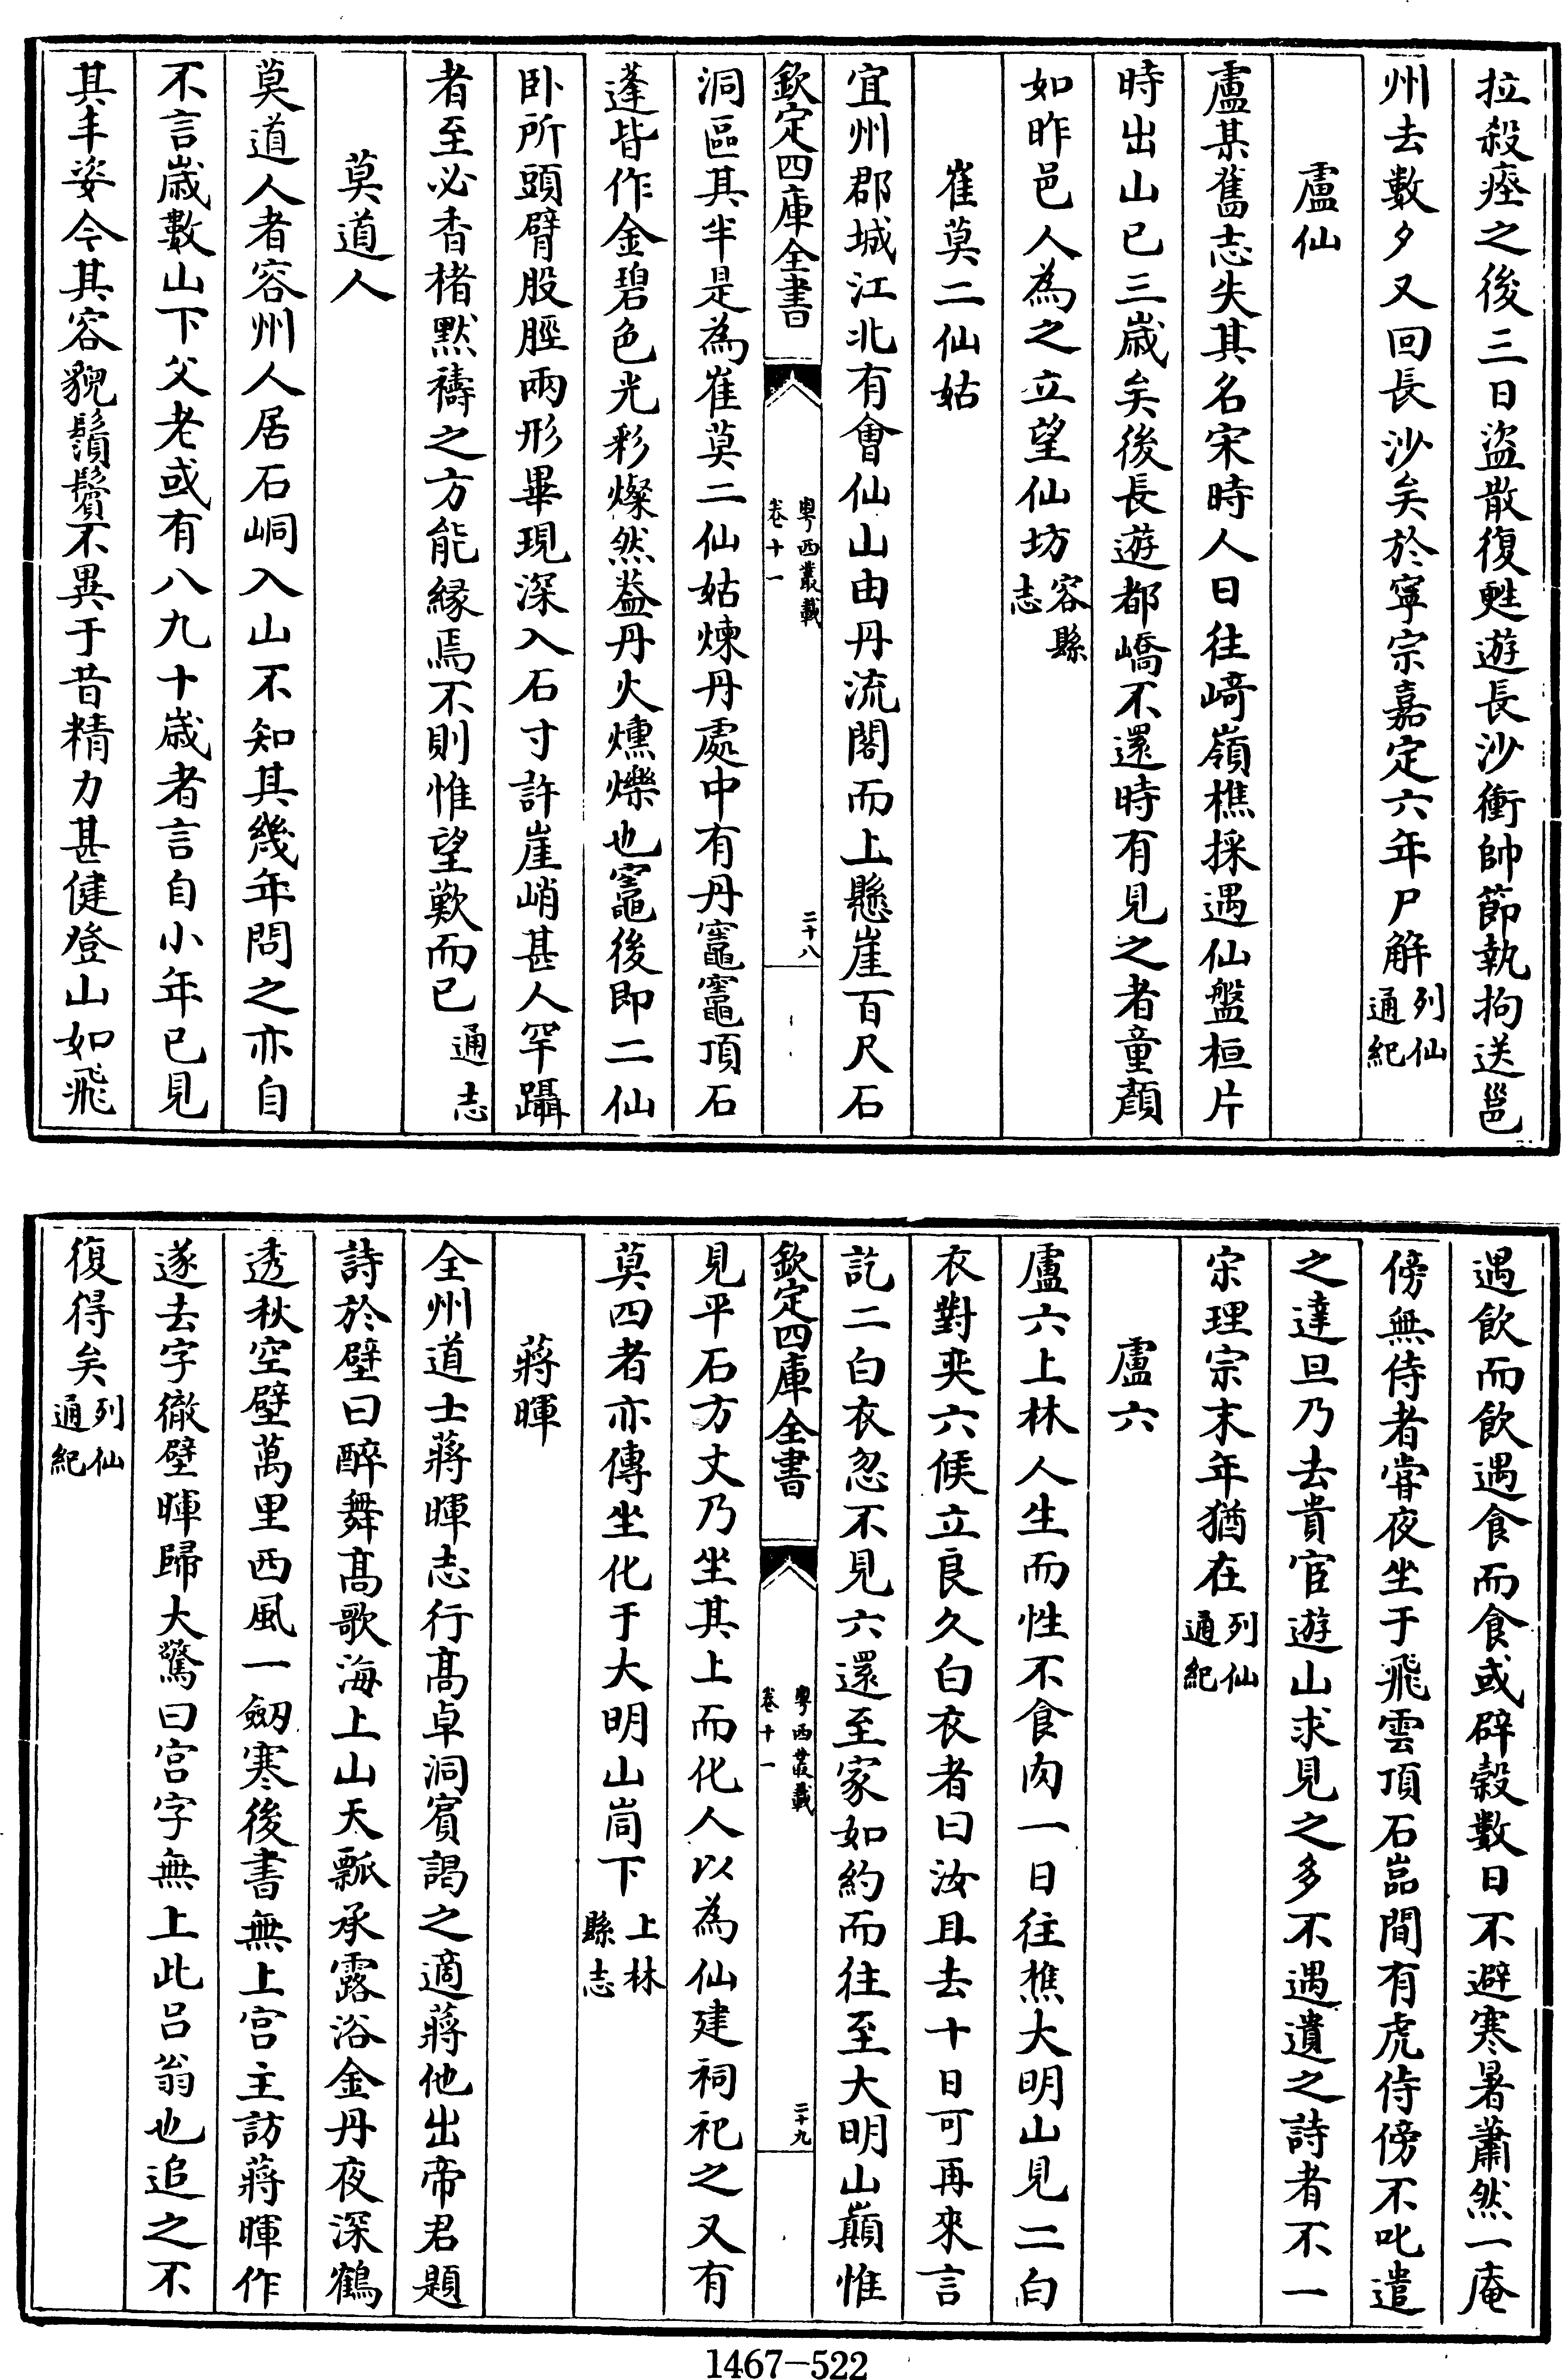 拉殺瘞之後三日盜散復甦遊長沙衝帥節執拘送邕
州去數夕又回長沙矣於寧宗嘉定六年尸解列仙通紀
盧仙
盧某舊志失其名宋時人日往崎嶺樵採遇仙盤桓片
時出山已三歳矣後長遊都嶠不還時有見之者童顏
如昨邑人為之立望仙坊容縣志
崔莫二仙姑
宜州郡城江北有會仙山由丹流閣而上懸崖百尺石
欽定四庫全書
粤西叢載
卷十一
二十八
洞區其半是為崔莫二仙姑煉丹處中有丹竈竈頂石
蓬皆作金碧色光彩燦然葢丹火燻爍也竈後即二仙
卧所頭臂股脛兩形畢現深入石寸許崖峭甚人罕躡
者至必香楮默禱之方能縁焉不則惟望歎而已通志
莫道人
莫道人者容州人居石峒入山不知其幾年問之亦自
不言歳數山下父老或有八九十歳者言自小年已見
其丰姿今其容貌鬚鬢不異于昔精力甚健登山如飛
遇飲而飲遇食而食或辟穀數日不避寒暑蕭然一庵
傍無侍者甞夜坐于飛雲頂石嵓間有虎侍傍不叱遣
之達旦乃去貴宦遊山求見之多不遇遺之詩者不一
宋理宗末年猶在列仙通紀
盧六
盧六上林人生而性不食肉一日往樵大明山見二白
衣對奕六候立良久白衣者曰汝且去十日可再來言
訖二白衣忽不見六還至家如約而往至大明山巔惟
欽定四庫全書
粤西叢載
卷十一
二十九
見平石方丈乃坐其上而化人以為仙建祠祀之又有
莫四者亦傳坐化于大明山峝下上林縣志
蔣暉
全州道士蔣暉志行髙卓洞賓謁之適蔣他出帝君題
詩於壁曰醉舞髙歌海上山天瓢承露浴金丹夜深鶴
透秋空壁萬里西風一劒寒後書無上宫主訪蔣暉作
遂去字徹壁暉歸大驚曰宫字無上此吕翁也追之不
復得矣列仙通紀
1467-522